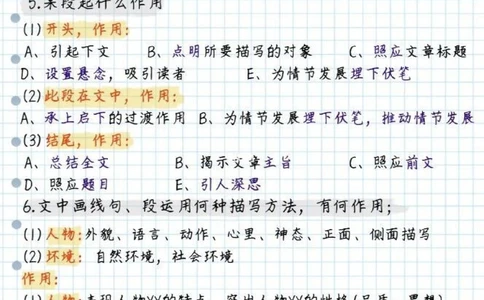 5.某段起什么作用
(1)开头,作用:
A、引起下文 B、点明所要描写的对象 C、照应文章标题
D、设置悬念,吸引读者 E、为情节发展埋下伏笔
(2)此段在文中,作用:
A、承上启下的过渡作用 B、为情节发展埋下伏笔,推动情节发展
(3)结尾,作用:
A、总结全文 B、揭示文章主旨 C、照应前文
D、照应题目 E、引人深思
6.文中画线句、段运用何种描写方法,有何作用;
(1)人物:外貌、语言、动作、心里、神态、正面、侧面描写
(2)环境:自然环境,社会环境
作用:
(1)人物:表现人物XX的特点,突出人物XX的性格(品质、思想)